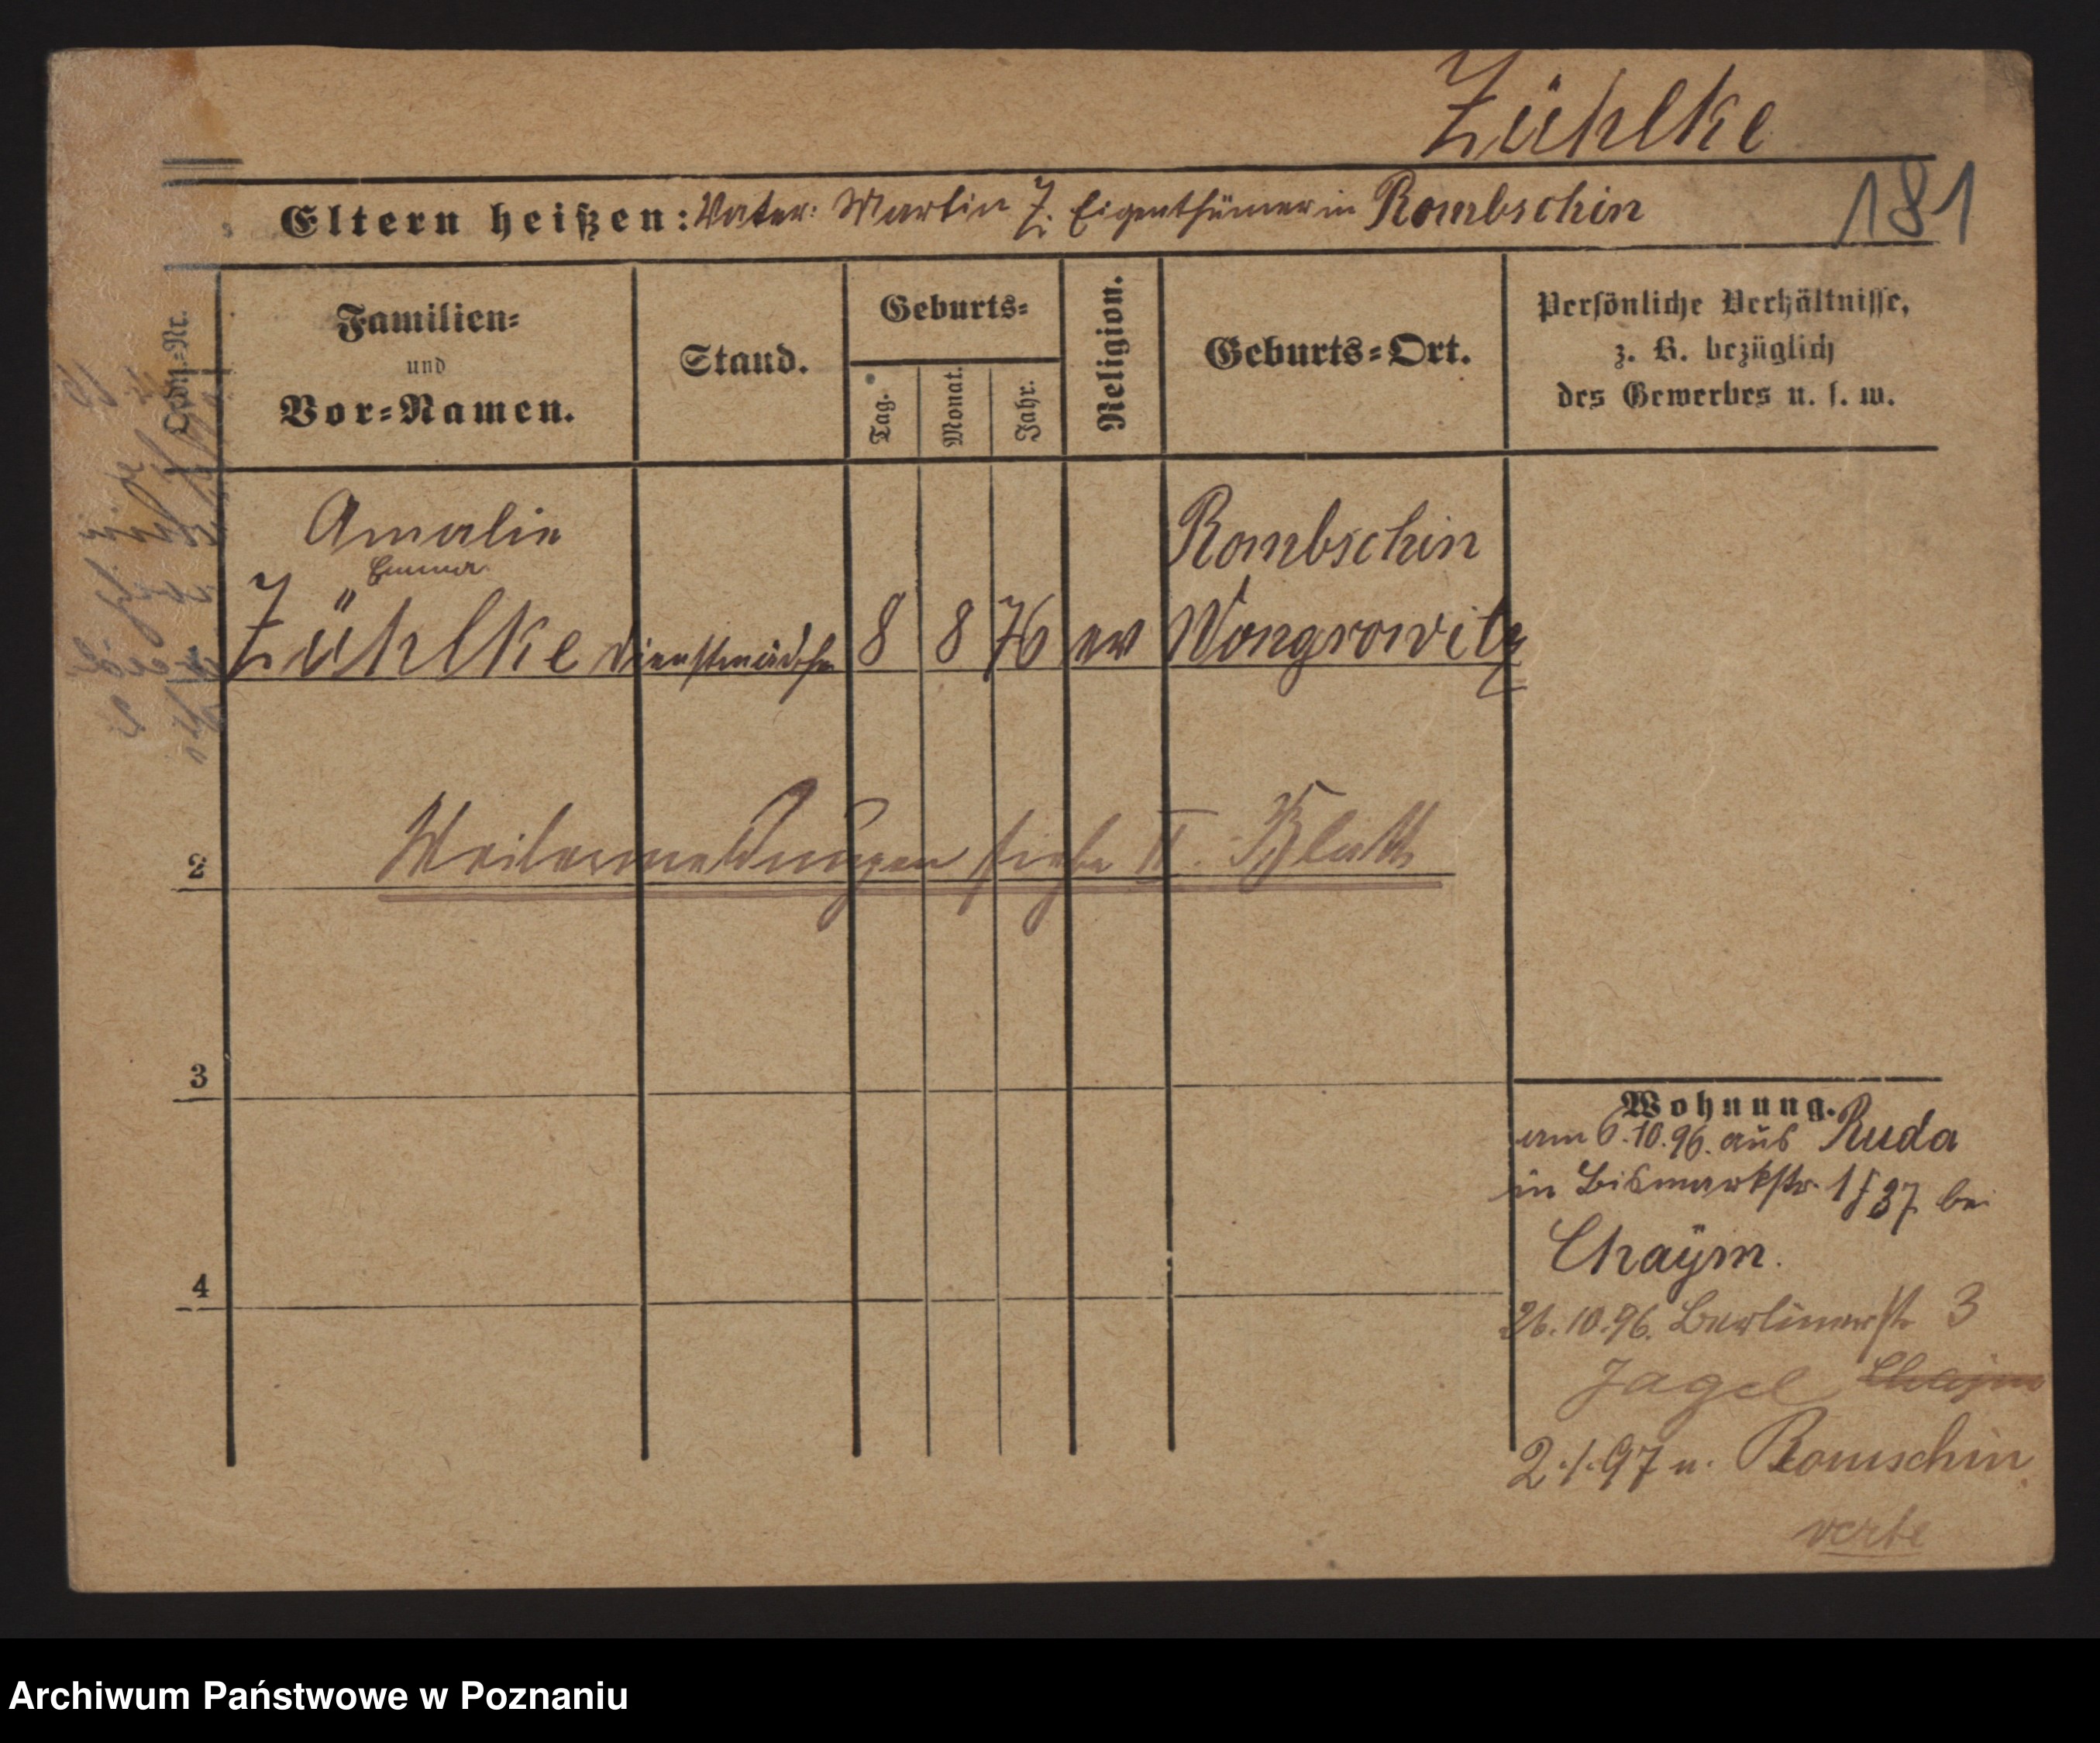 Zühlke
Eltern heißen: Vater: Martin Z. Eigenthümer in Rombschin
181
Ordn.-Nr.
Familien-
und
Vor-Namen.
Stand.
Geburts-
Tag.
Monat.
Jahr.
Religion.
Geburts-Ort.
Persönliche Verhältnisse,
z. B. bezüglich
des Gewerbes u. s. w.
Amalie
Emma
Zühlke Dienstmädchen 8 8 76 ev
Rombschin
Wongrowitz
2
Weitermeldungen siehe II. Blatt
3
4
Wohnung.
am 6.10.96. aus Ruda
in Bismarkstr. 1 37 bei
Chaÿm.
26.10.96. Berlinerstr 3
Jagel Chaym
2.1.97 n. Romschin
verte
Archiwum Państwowe w Poznaniu